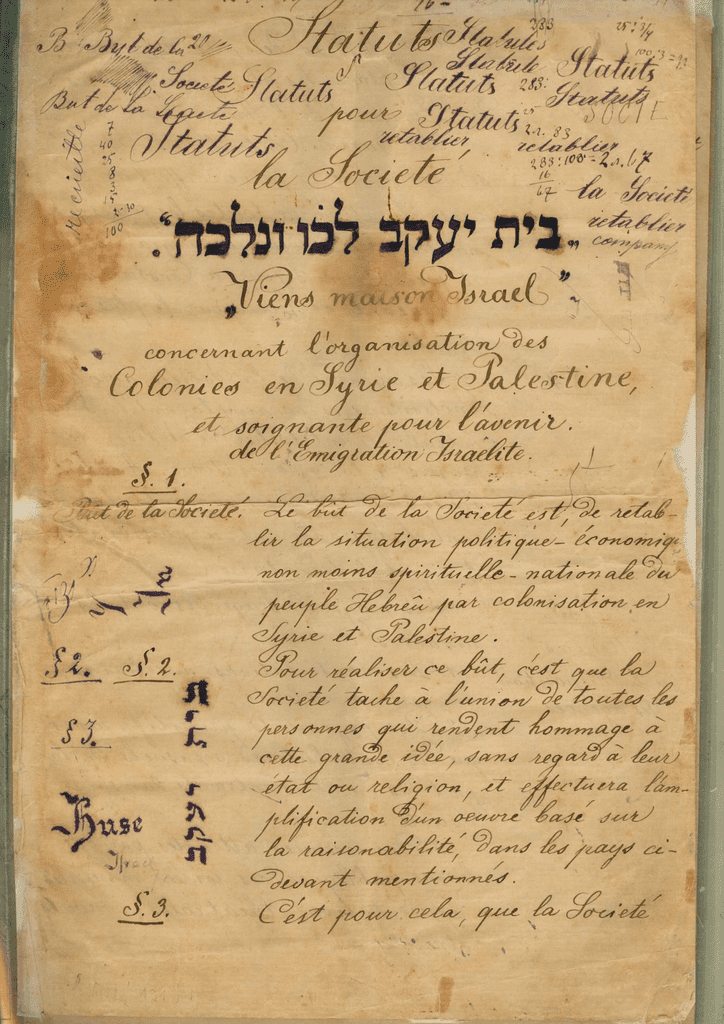 Statuts
B But de la
Societé
But de la Societé
Statuts
Statuts
Statuts
Statuts
Statuts
Statuts
283
pour
Statuts
retablier
retablier
Statuts
la Societé
la Societé
retablier
company
„בית יעקב לכו ונלכה“.
„Viens maison Israel”
concernant l'organisation des
Colonies en Syrie et Palestine,
et soignante pour l'avenir.
de l'Emigration Israélite.
§. 1.
But de la Societé. Le bùt de la Societé est, de retab-
lir la situation politique-économiq
non moins spirituelle-nationale du
peuple Hebrêu par colonisation en
Syrie et Palestine.
§2. §. 2. Pour réaliser ce bût, c'est que la
Societé tache à l'union de toutes les
§3. personnes qui rendent hommage à
cette grande idée, sans regard à leur
état ou religion, et effectuera l'am-
Huse plification d'un oeuvre basé sur
la raisonabilité, dans les pays ci-
devant mentionnés.
§. 3. C'est pour cela, que la Societé
בית יעקב